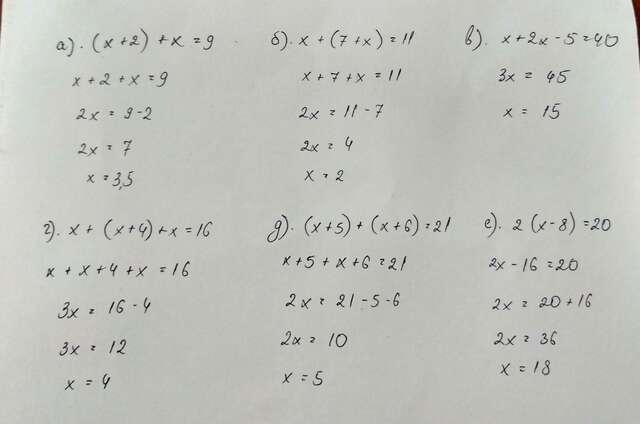 а). (x+2)+x=9
x+2+x=9
2x=9-2
2x=7
x=3,5
б). x+(7+x)=11
x+7+x=11
2x=11-7
2x=4
x=2
в). x+2x-5=40
3x=45
x=15
г). x+(x+4)+x=16
x+x+4+x=16
3x=16-4
3x=12
x=4
д). (x+5)+(x+6)=21
x+5+x+6=21
2x=21-5-6
2x=10
x=5
е). 2(x-8)=20
2x-16=20
2x=20+16
2x=36
x=18